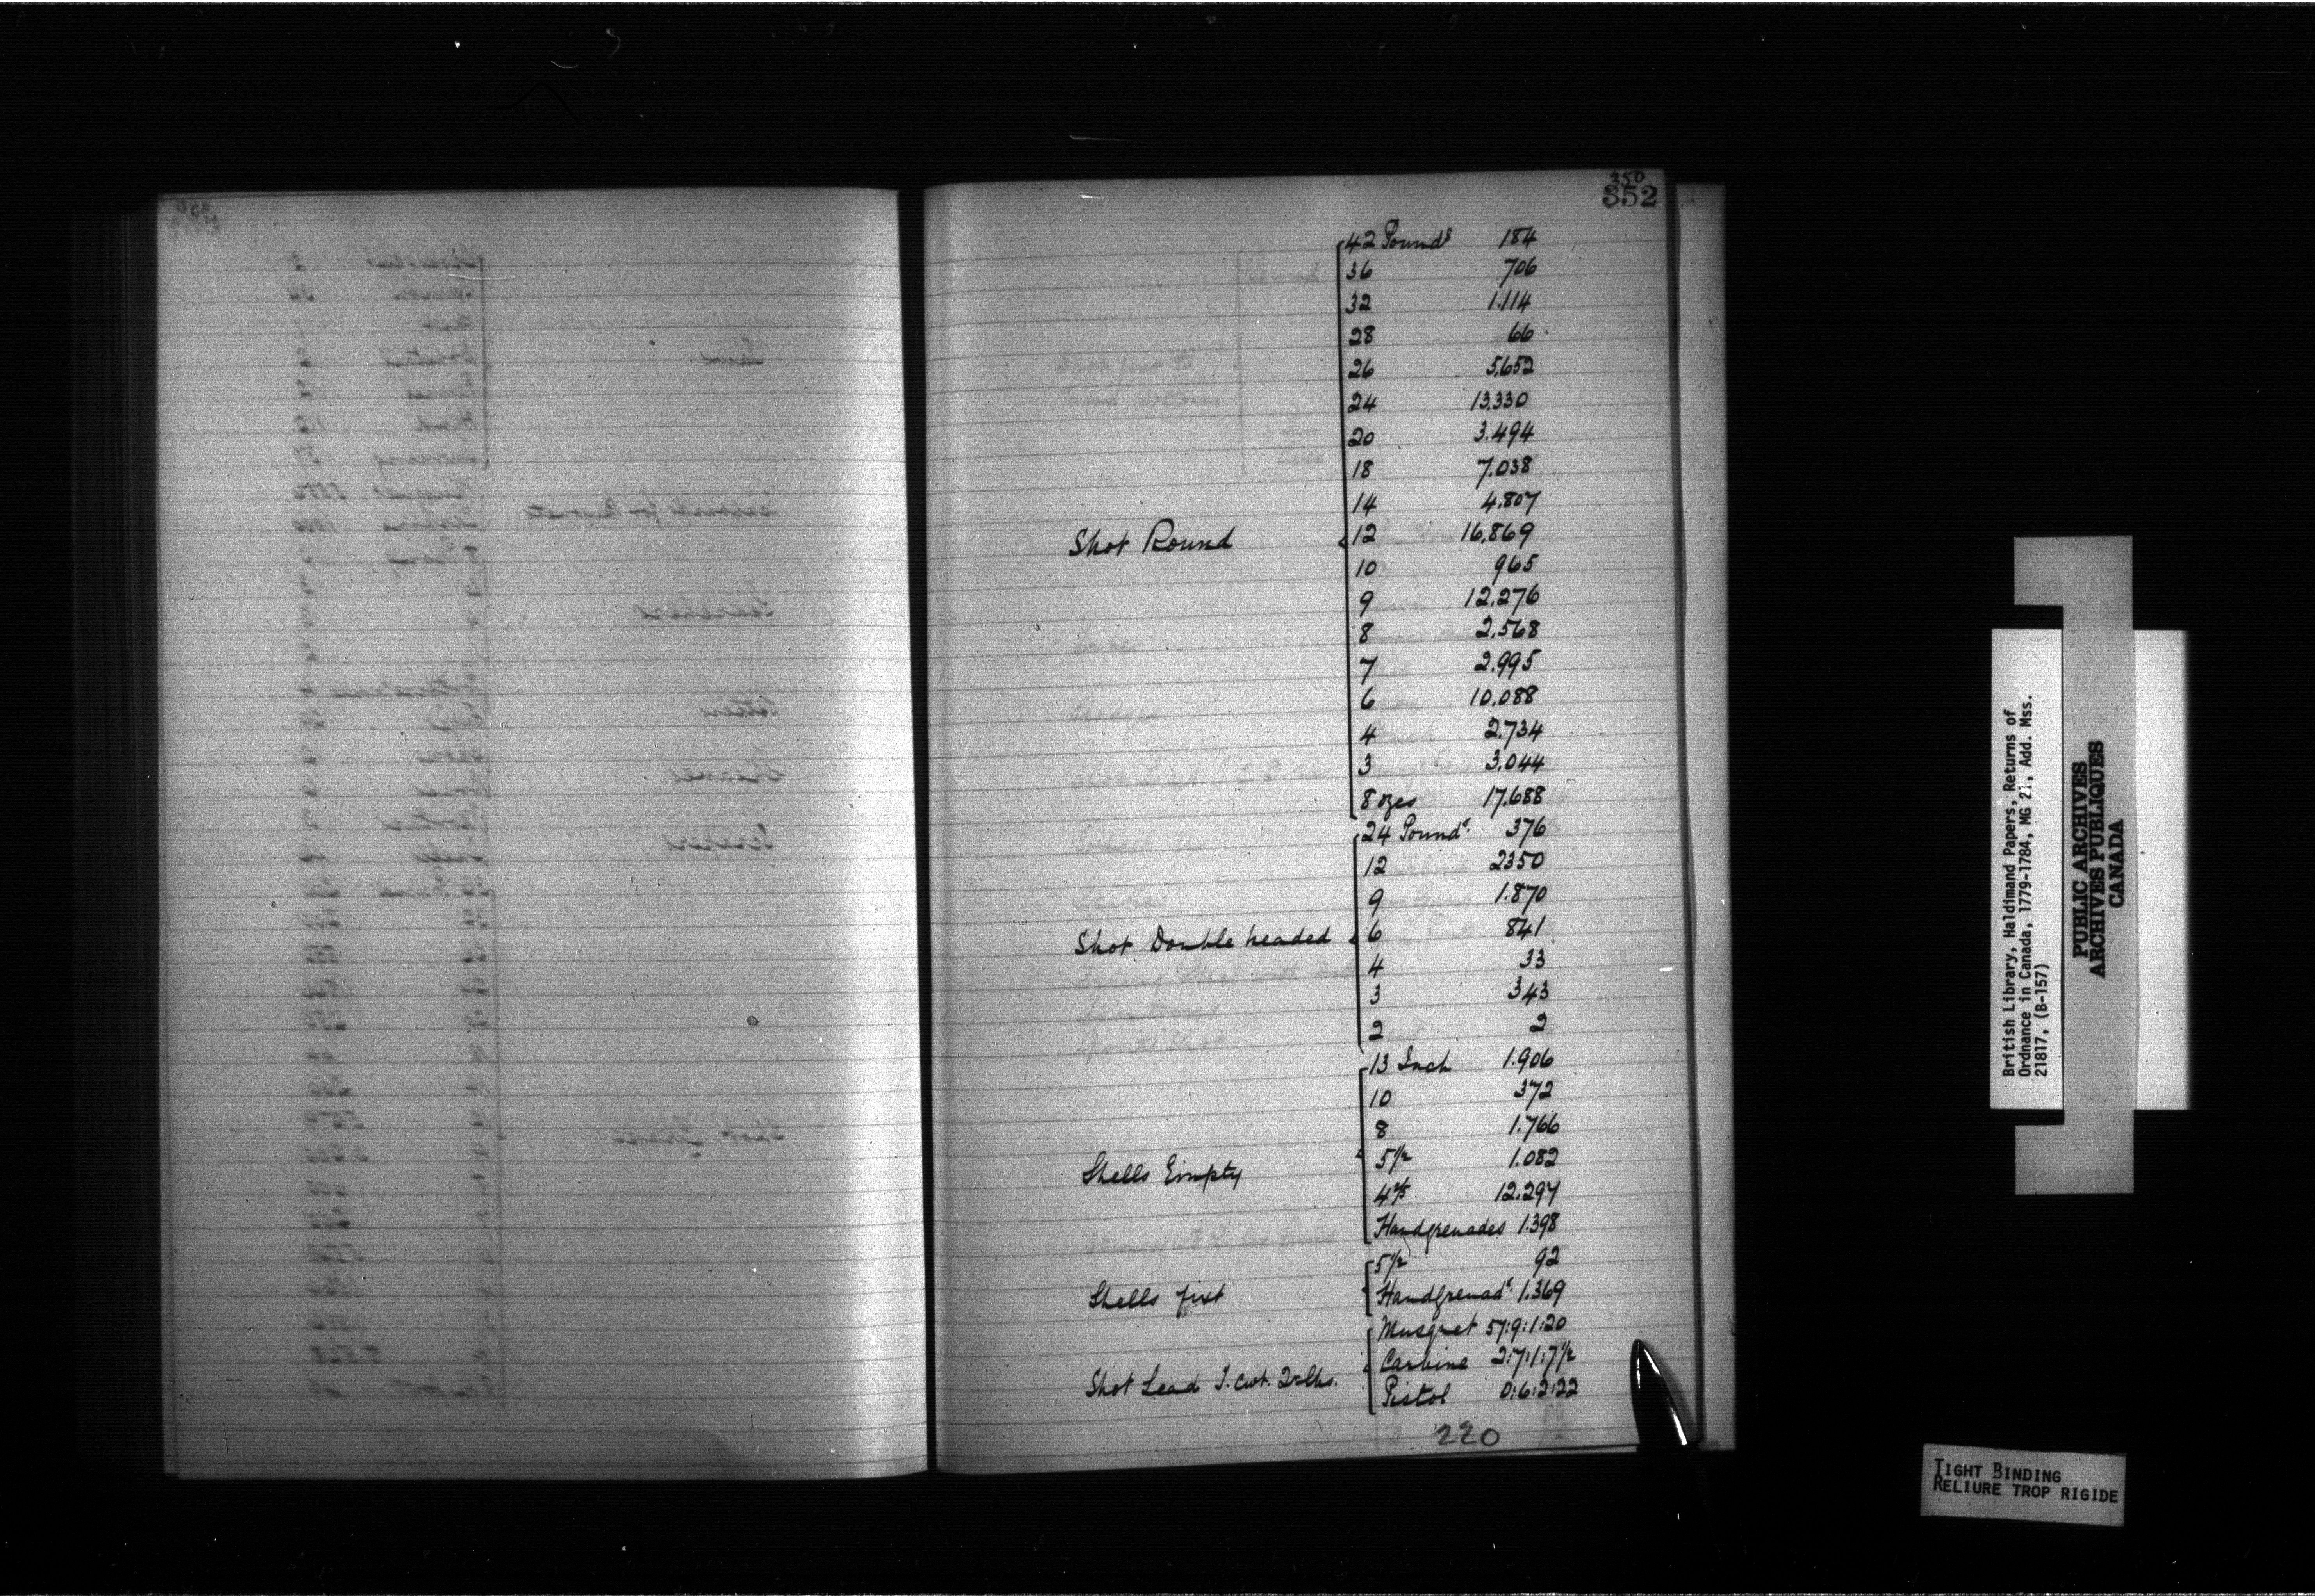 350
352
42 Pounds 184
36 706
32 1.114
28 66
26 5,652
24 13,330
20 3.494
18 7.038
14 4.807
Shot Round 12 16,869
10 965
9 12,276
8 2,568
7 2.995
6 10,088
4 2,734
3 3,044
8 ozes 17,688
24 Pounds. 376
12 2350
9 1.870
Shot Double headed 6 841
4 33
3 343
2 2
13 Inch 1.906
10 372
8 1.766
Shells Empty 5 1/2 1.082
4 2/5 12.297
Handgrenades 1.398
5 1/2 92
Shells fixt Handgrenads. 1.369
Musquet 57:9:1:20
Carbine 2:7:1:7 1/2
Shot Lead T. cwt. 2rs lbs. Pistol 0:6:2:22
220
British Library, Haldimand Papers, Returns of
Ordnance in Canada, 1779-1784, MG 21, Add. Mss.
21817, (B-157)
PUBLIC ARCHIVES
ARCHIVES PUBLIQUES
CANADA
TIGHT BINDING
RELIURE TROP RIGIDE